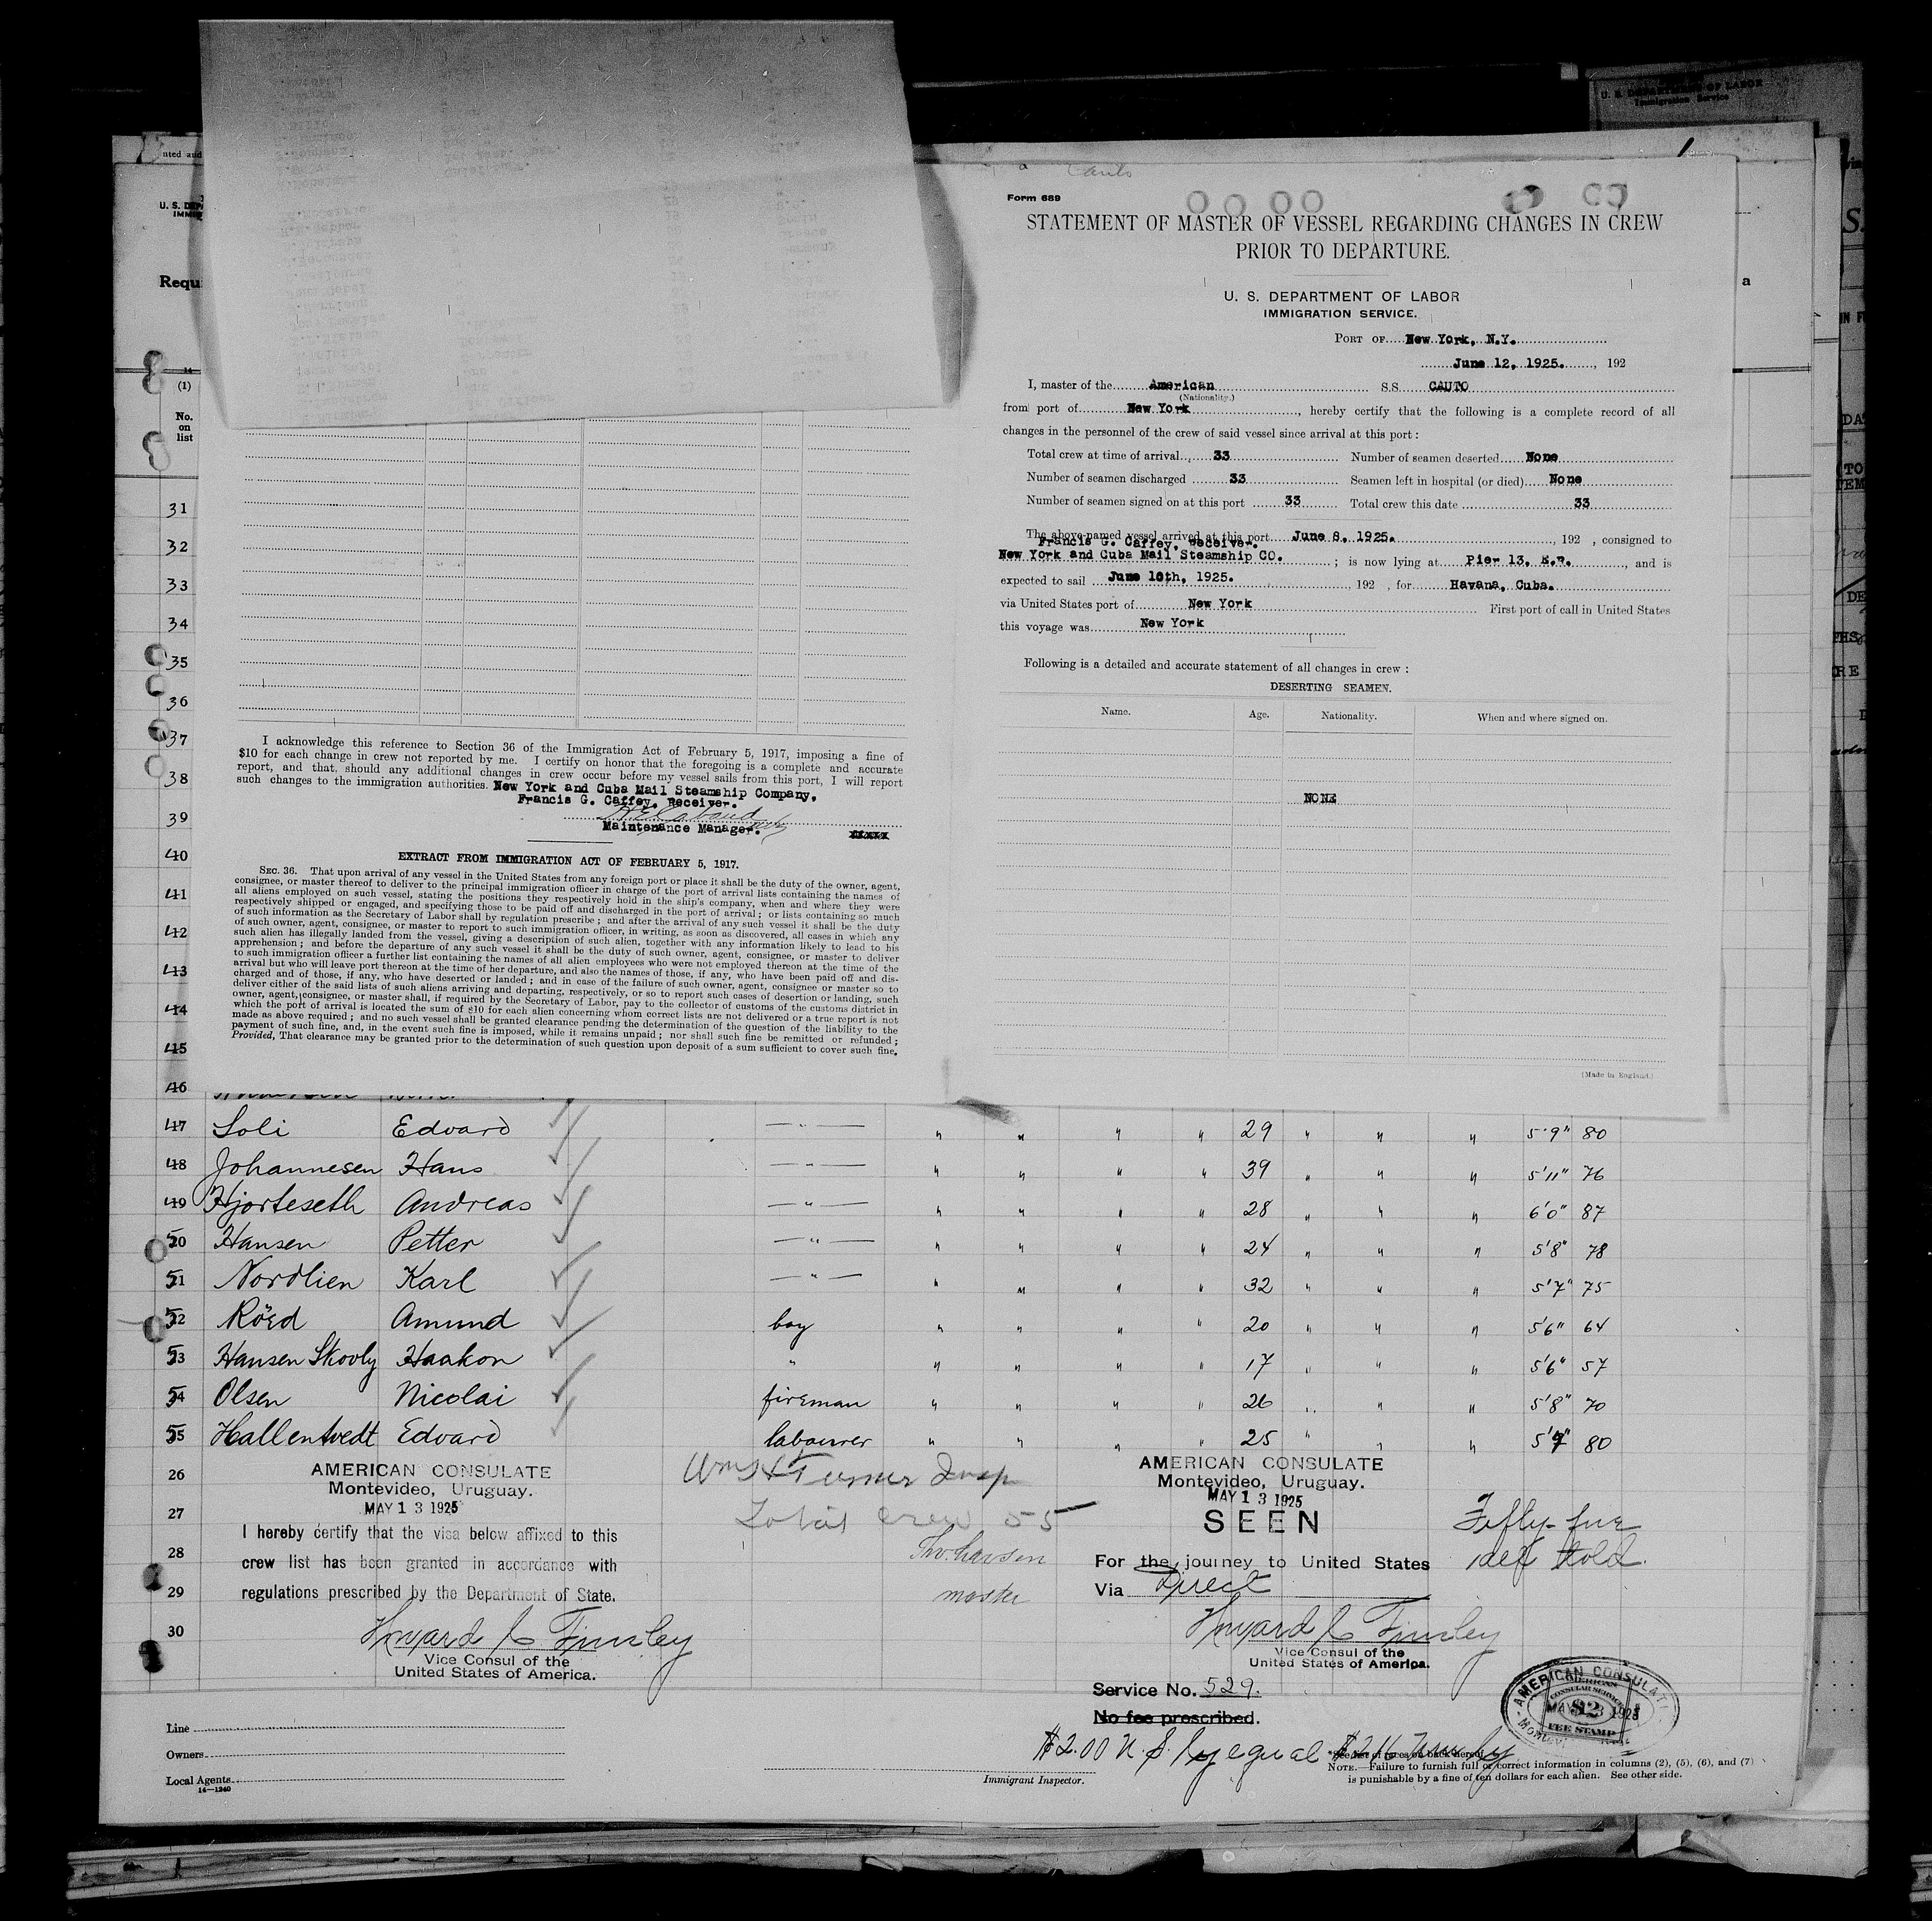 U. S. DEPARTMENT OF LABOR
Immigration Service
nted and
U. S. DEPA
IMMIG
Requi
14
(1)
No.
on
list
a
Cauto
Form 689
STATEMENT OF MASTER OF VESSEL REGARDING CHANGES IN CREW
PRIOR TO DEPARTURE.
U. S. DEPARTMENT OF LABOR
IMMIGRATION SERVICE.
PORT OF New York, N.Y.
June 12, 1925. , 192
I, master of the American S.S. CAUTO
(Nationality.)
from port of New York , hereby certify that the following is a complete record of all
changes in the personnel of the crew of said vessel since arrival at this port :
Total crew at time of arrival 33 Number of seamen deserted None
Number of seamen discharged 33 Seamen left in hospital (or died) None
Number of seamen signed on at this port 33 Total crew this date 33
The above-named vessel arrived at this port June 8, 1925. , 192 , consigned to
Francis G. Caffey, Receiver.
New York and Cuba Mail Steamship CO. ; is now lying at Pier 13, E.R. , and is
expected to sail June 16th, 1925. , 192 , for Havana, Cuba.
via United States port of New York First port of call in United States
this voyage was New York
Following is a detailed and accurate statement of all changes in crew :
DESERTING SEAMEN.
Name. Age. Nationality. When and where signed on.
NONE
(Made in England.)
I acknowledge this reference to Section 36 of the Immigration Act of February 5, 1917, imposing a fine of
$10 for each change in crew not reported by me. I certify on honor that the foregoing is a complete and accurate
report, and that, should any additional changes in crew occur before my vessel sails from this port, I will report
such changes to the immigration authorities. New York and Cuba Mail Steamship Company,
Francis G. Caffey, Receiver.
Maintenance Manager.
EXTRACT FROM IMMIGRATION ACT OF FEBRUARY 5, 1917.
SEC. 36. That upon arrival of any vessel in the United States from any foreign port or place it shall be the duty of the owner, agent,
consignee, or master thereof to deliver to the principal immigration officer in charge of the port of arrival lists containing the names of
all aliens employed on such vessel, stating the positions they respectively hold in the ship's company, when and where they were
respectively shipped or engaged, and specifying those to be paid off and discharged in the port of arrival ; or lists containing so much
of such information as the Secretary of Labor shall by regulation prescribe ; and after the arrival of any such vessel it shall be the duty
of such owner, agent, consignee, or master to report to such immigration officer, in writing, as soon as discovered, all cases in which any
such alien has illegally landed from the vessel, giving a description of such alien, together with any information likely to lead to his
apprehension ; and before the departure of any such vessel it shall be the duty of such owner, agent, consignee, or master to deliver
to such immigration officer a further list containing the names of all alien employees who were not employed thereon at the time of the
arrival but who will leave port thereon at the time of her departure, and also the names of those, if any, who have been paid off and dis-
charged and of those, if any, who have deserted or landed ; and in case of the failure of such owner, agent, consignee or master so to
deliver either of the said lists of such aliens arriving and departing, respectively, or so to report such cases of desertion or landing, such
owner, agent, consignee, or master shall, if required by the Secretary of Labor, pay to the collector of customs of the customs district in
which the port of arrival is located the sum of $10 for each alien concerning whom correct lists are not delivered or a true report is not
made as above required ; and no such vessel shall be granted clearance pending the determination of the question of the liability to the
payment of such fine, and, in the event such fine is imposed, while it remains unpaid ; nor shall such fine be remitted or refunded ;
Provided, That clearance may be granted prior to the determination of such question upon deposit of a sum sufficient to cover such fine.
31
32
33
34
35
36
37
38
39
40
41
42
43
44
45
46
47 Soli Edvard — " — " " " " 29 " " " 5'9" 80
48 Johannesen Hans — " — " " " " 39 " " " 5'11" 76
49 Hjorteseth Andreas — " — " " " " 28 " " " 6'0" 87
50 Hansen Petter — " — " " " " 24 " " " 5'8" 78
51 Nordlien Karl — " — " " " " 32 " " " 5'7" 75
52 Röed Amund boy " " " " 20 " " " 5'6" 64
53 Hansen Skovly Haakon " " " " " 17 " " " 5'6" 57
54 Olsen Nicolai fireman " " " " 26 " " " 5'8" 70
55 Hallentvedt Edvard labourer " " " " 25 " " " 5'9" 80
26
27
28
29
30
AMERICAN CONSULATE
Montevideo, Uruguay.
MAY 13 1925
I hereby certify that the visa below affixed to this
crew list has been granted in accordance with
regulations prescribed by the Department of State.
Howard C Finsley
Vice Consul of the
United States of America.
Wm H Turner Insp
Total crew 55
Thv. Larsen
master
AMERICAN CONSULATE
Montevideo, Uruguay.
MAY 13 1925
SEEN
For the journey to United States
Via Direct
Fifty-five
Howard C Finsley
Vice Consul of the
United States of America.
Service No. 529.
No fee prescribed.
$2.00 U.S.
AMERICAN CONSULATE
AMERICAN
CONSULAR SERVICE
$2
MAY 13 1925
FEE STAMP
Line
Owners
Local Agents
14—1240
Immigrant Inspector.
*See list of races on back hereof.
NOTE.—Failure to furnish full or correct information in columns (2), (5), (6), and (7)
is punishable by a fine of ten dollars for each alien. See other side.